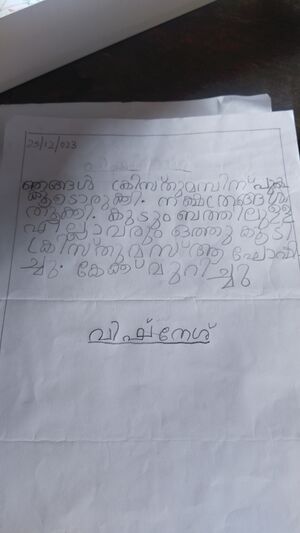 25/12/023
ഞങ്ങൾ ക്രിസ്തുമസിന് പുൽ
കൂടൊരുക്കി. നക്ഷത്രങ്ങൾ
തൂക്കി. കുടുംബത്തിലുള്ള
എല്ലാവരും ഒത്തു കൂടി
ക്രിസ്തുമസ് ആഘോഷി
ച്ചു. കേക്ക് മുറിച്ചു
വിഷ്നേശ്